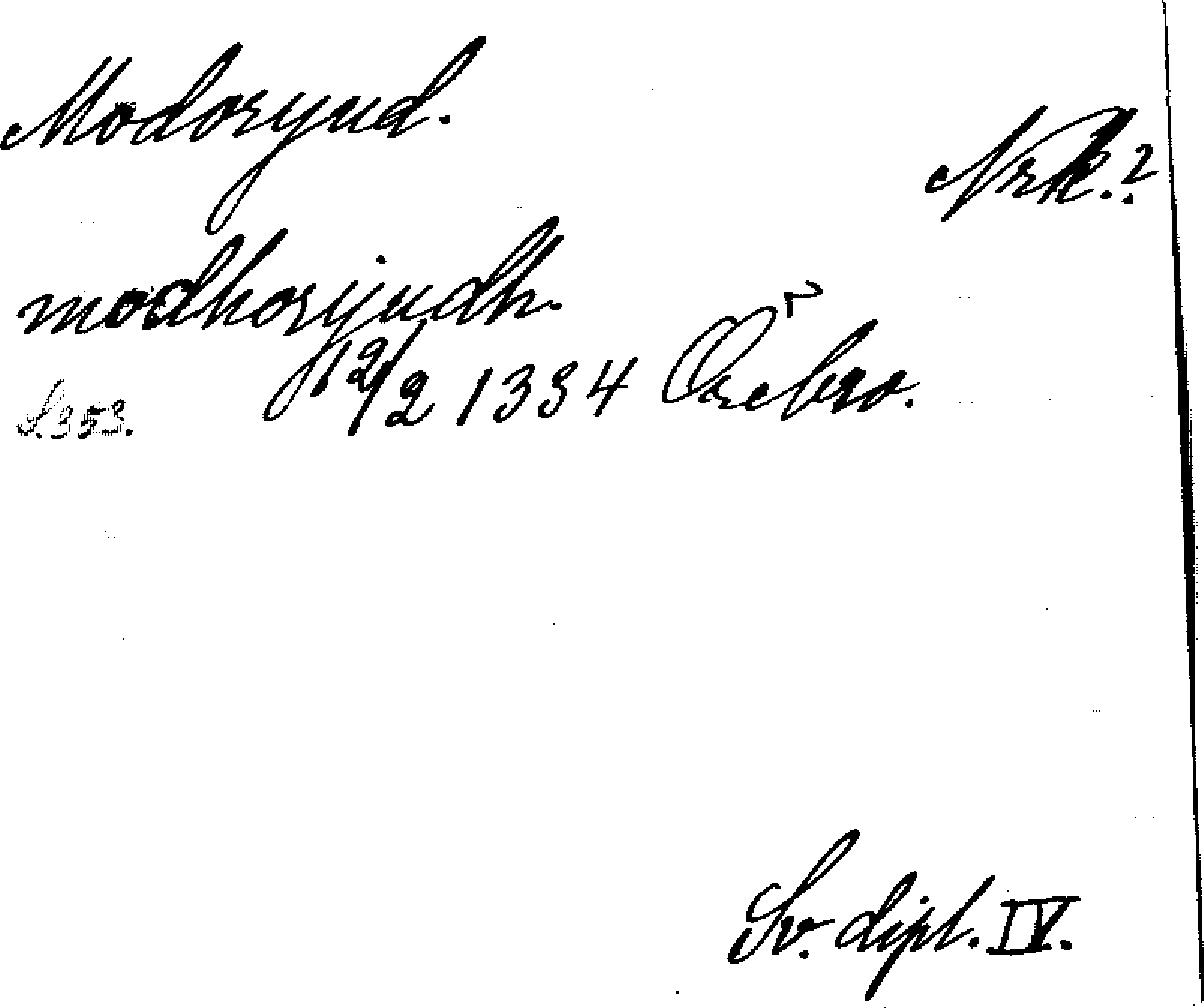 Modoryud.
Nrk.?
modhoryudh.
12/2 1334 Örebro.
S. 353.
Sv. dipl. IV.